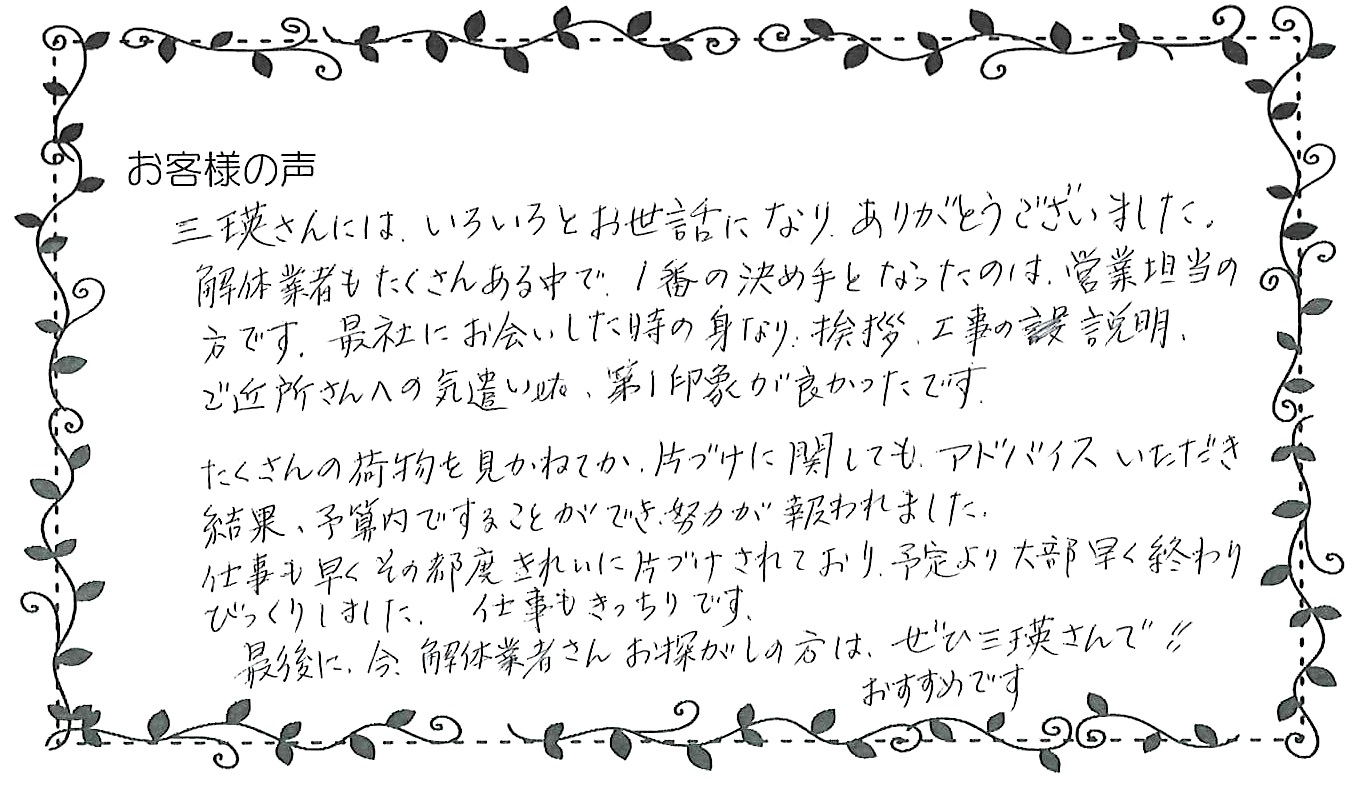 お客様の声
三瑛さんには、いろいろとお世話になり、ありがとうございました。
解体業者もたくさんある中で、1番の決め手となったのは、営業担当の
方です。最社にお会いした時の身なり、挨拶、工事の説明、
ご近所さんへの気遣いetc、第1印象が良かったです。
たくさんの荷物を見かねてか、片づけに関しても、アドバイスいただき
結果、予算内ですることができ、努力が報われました。
仕事も早くその都度きれいに片づけされており、予定より大部早く終わり
びっくりしました。 仕事もきっちりです。
最後に、今、解体業者さんお探がしの方は、ぜひ三瑛さんで!!
おすすめです